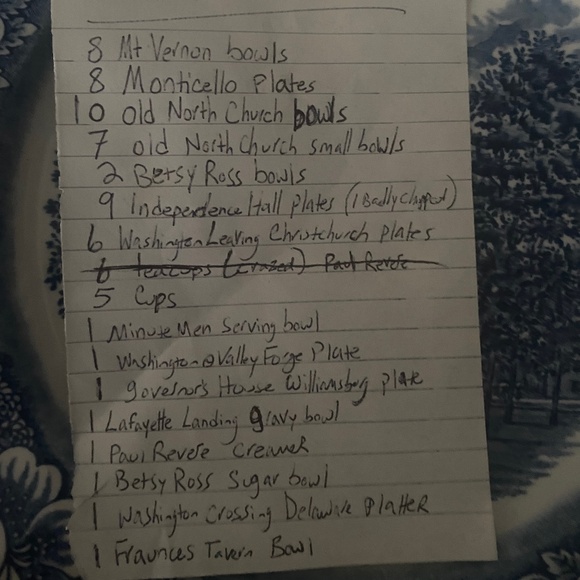 8 Mt Vernon bowls
8 Monticello Plates
10 old North Church bowls
7 old North Church small bowls
2 Betsy Ross bowls
9 Independence Hall Plates (1 Badly Chipped)
6 Washington Leaving Christchurch plates
6 teacups (crazed) Paul Revere
5 Cups
1 Minute Men Serving bowl
1 Washington @ Valley Forge Plate
1 governor's House Williamsburg plate
1 Lafayette Landing gravy bowl
1 Paul Revere Creamer
1 Betsy Ross Sugar bowl
1 Washington Crossing Delaware Platter
1 Fraunces Tavern Bowl